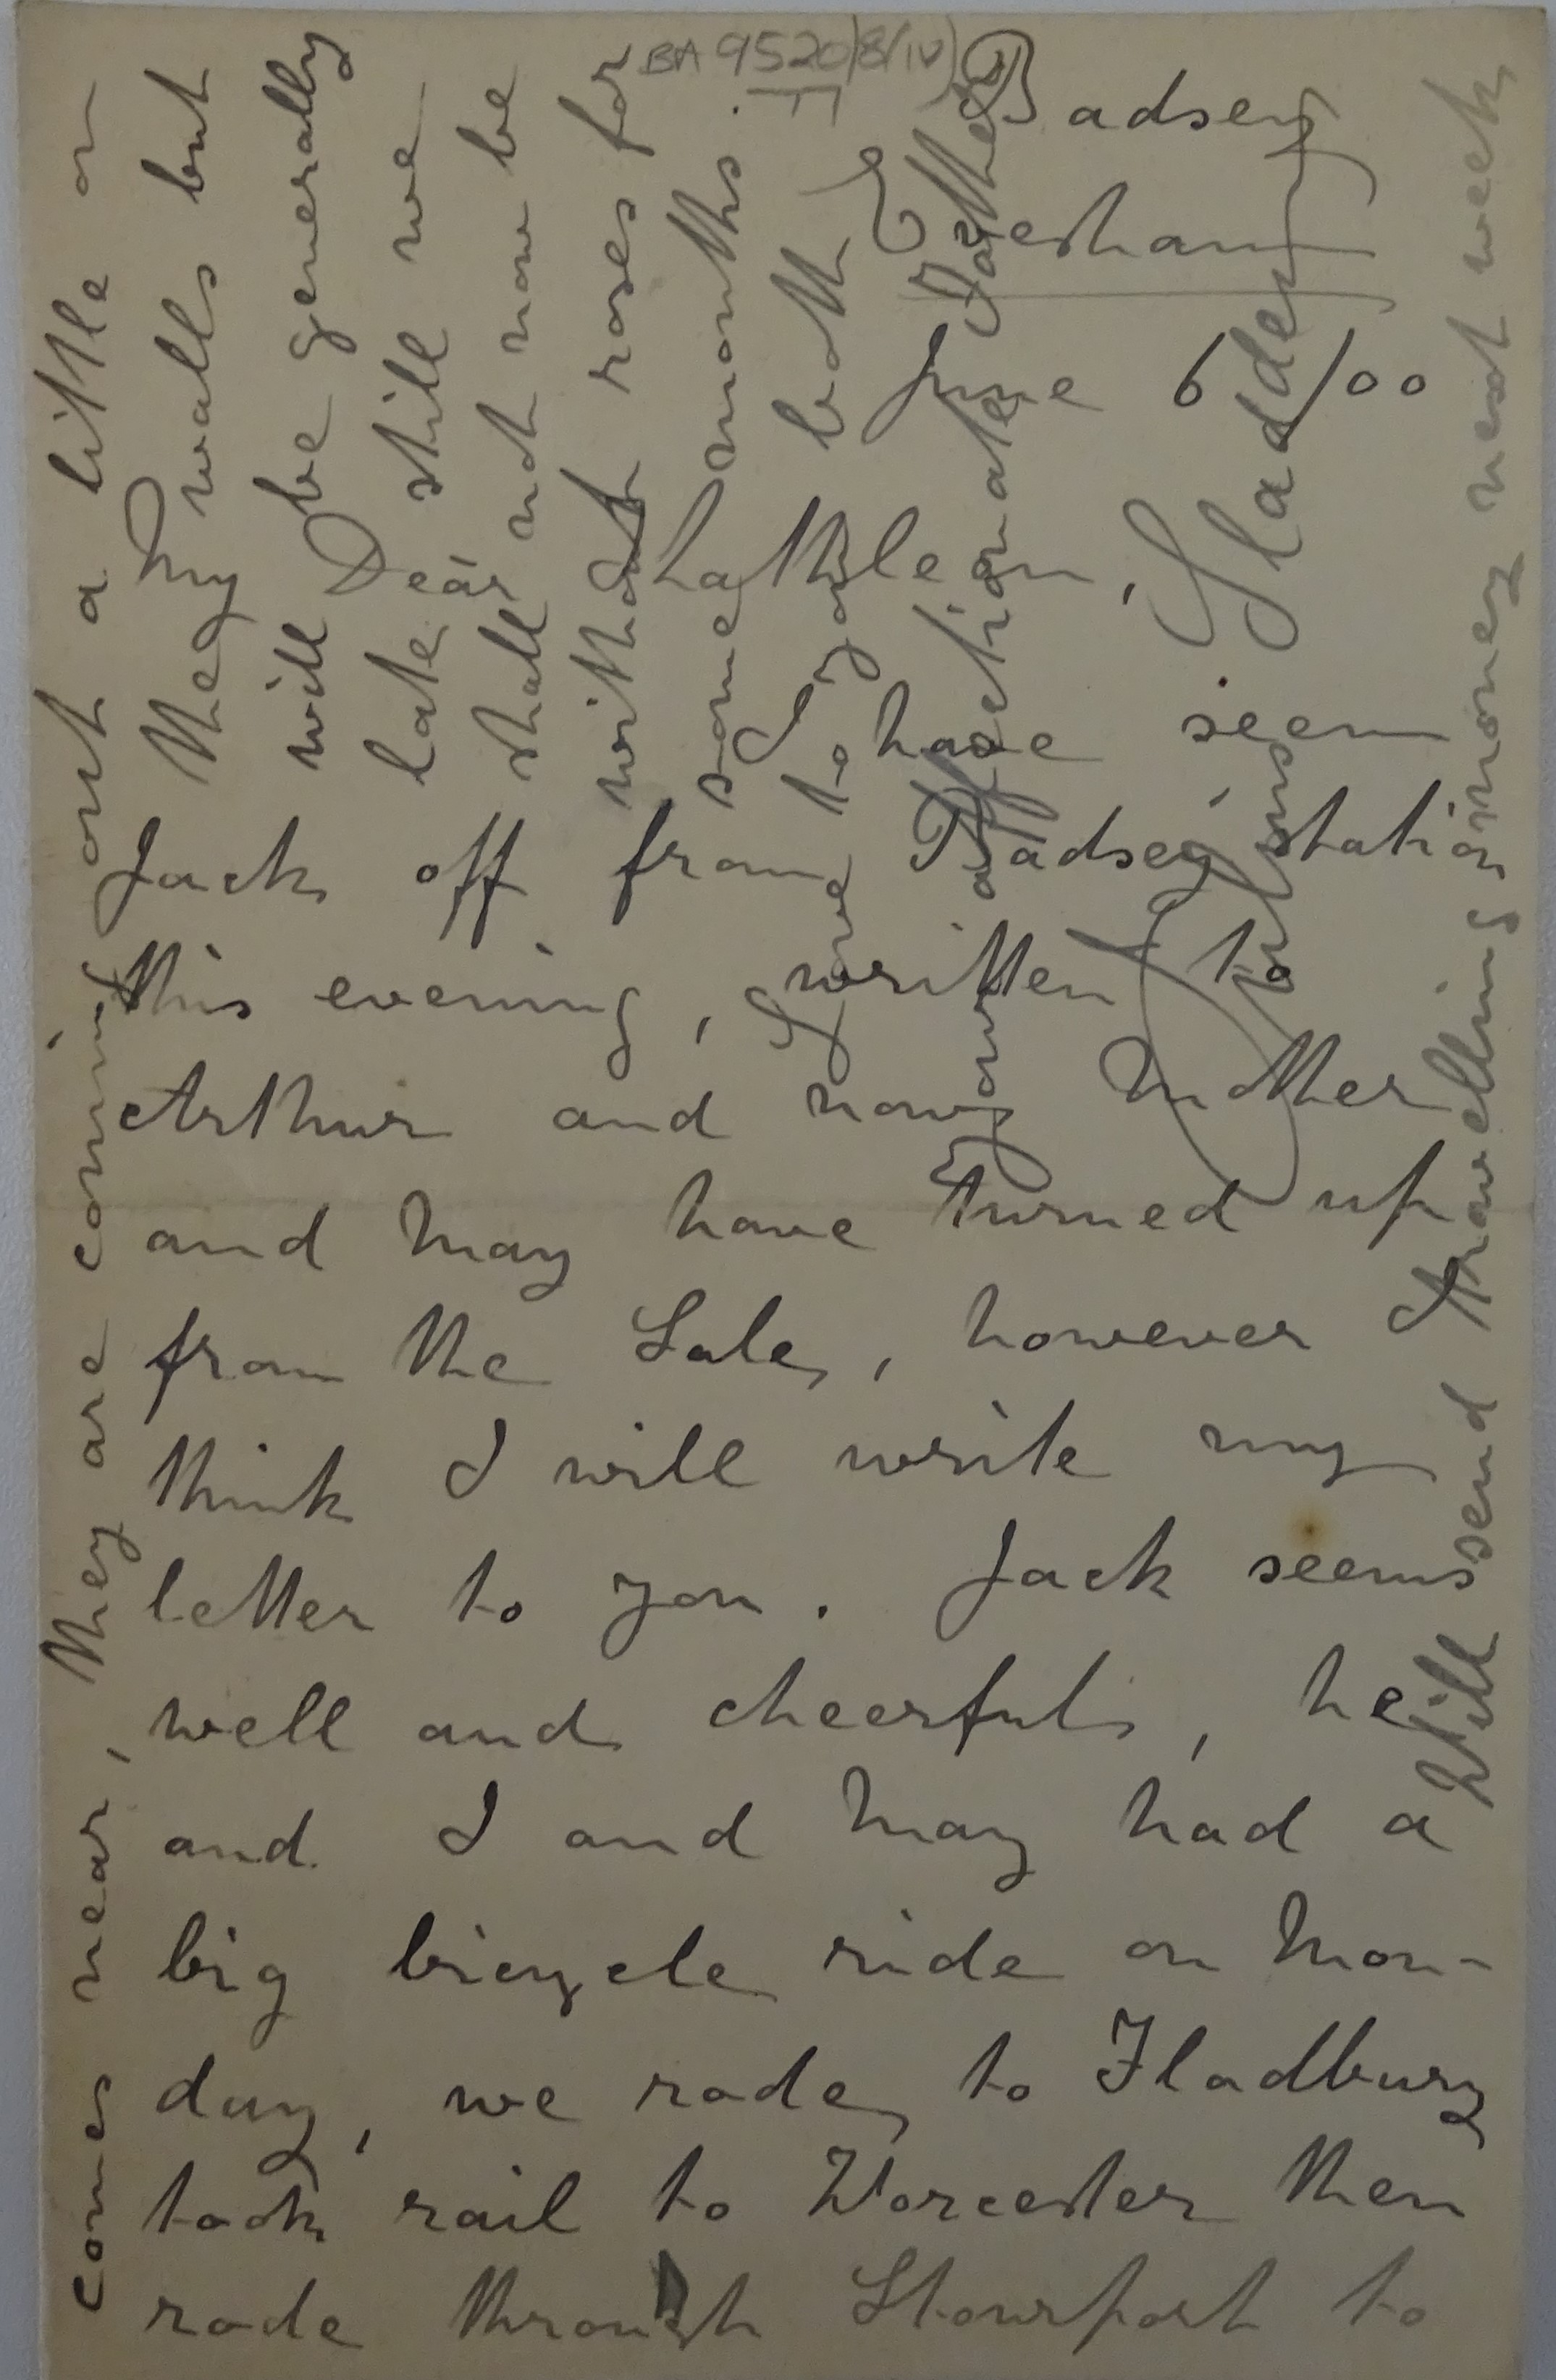 BA 9520/8/iv)
Badsey
Evesham
June 6/00
My Dear
Kathleen,
I have seen
Jack off from Badsey station
this evening, written to
Arthur and now Mother
and May have turned up
from the Sale, however I
think I will write my
letter to you. Jack seems
well and cheerful, he
and I and May had a
big bicycle ride on Mon-
day, we rode to Fladbury
took rail to Worcester then
rode through Stourport to
comes near, they are coming out a little on
the walls but
will be generally
late still we
shall not now be
without roses for
some months.
Love to you both
Your affectionate Father
Julius Sladden
Will send travelling money next week